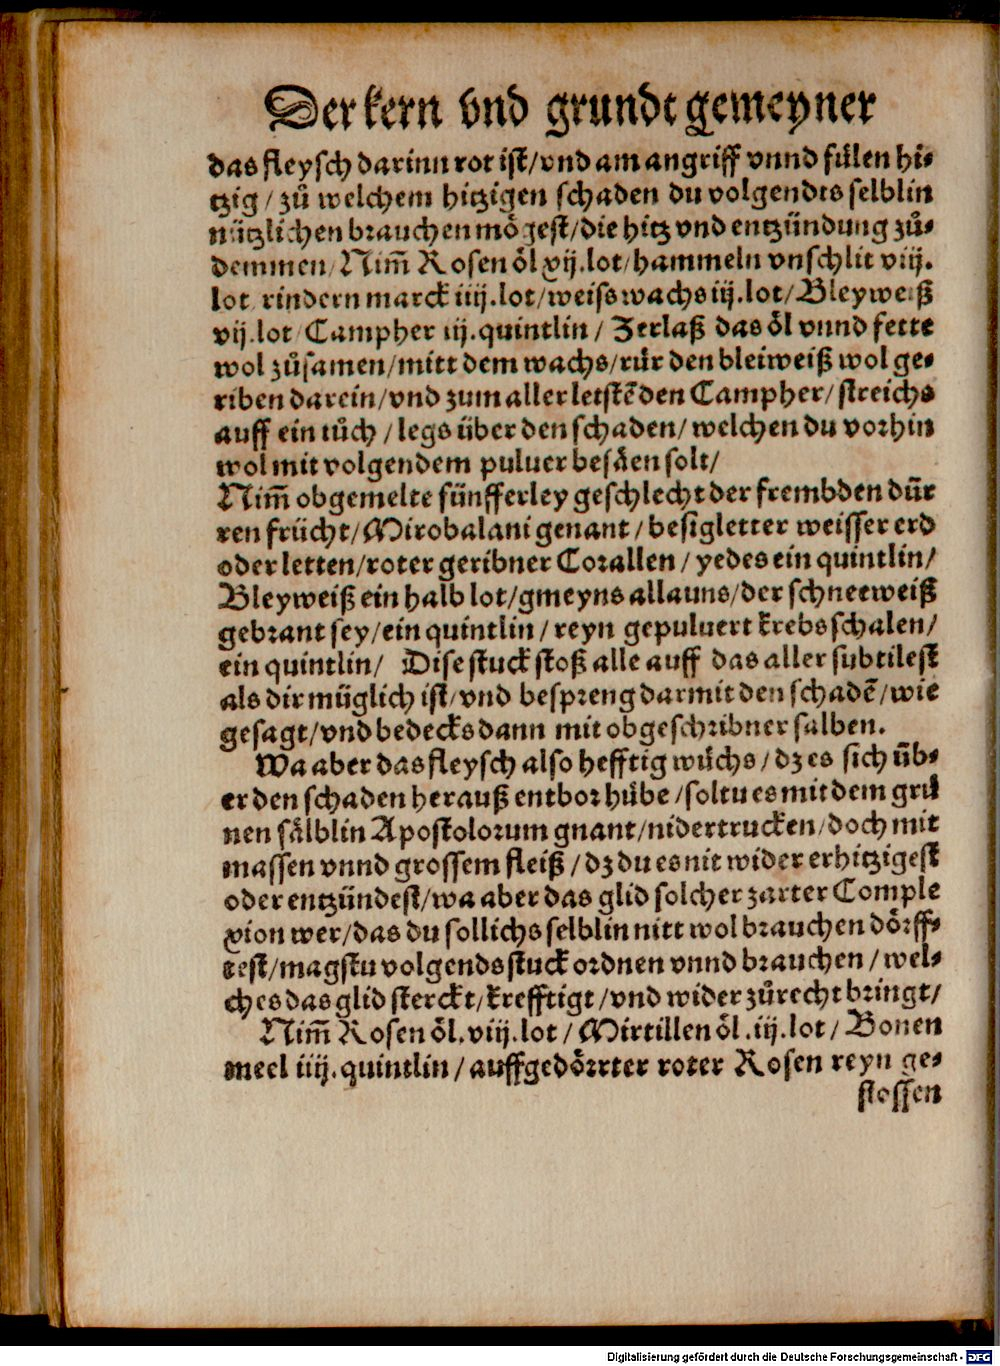 Der kern vnd grundt gemeyner
das fleysch darinn rot ist/vnd am angriff vnnd fülen hi-
tzig / zů welchem hitzigen schaden du volgendts selblin
nützlichen brauchen mögest/die hitz vnd entzündung zů-
demmen/ Nim̃ Rosen öl xij.lot/hammeln vnschlit viij.
lot rindern marck iiij.lot/weiss wachs iij.lot/ Bleyweiß
vij.lot/ Campher iij.quintlin/ Zerlaß das öl vnnd fette
wol zůsamen/mitt dem wachs/rür den bleiweiß wol ge-
riben darein/vnd zum aller letstẽ den Campher/ streichs
auff ein tůch / legs über den schaden/ welchen du vorhin
wol mit volgendem puluer besäen solt/
Nim̃ obgemelte fünfferley geschlecht der frembden dür
ren frücht/ Mirobalani genant / besigletter weisser erd
oder letten/roter geribner Corallen / yedes ein quintlin/
Bleyweiß ein halb lot/gmeyns allauns/der schneeweiß
gebrant sey/ein quintlin / reyn gepuluert krebs schalen/
ein quintlin/ Dise stuck stoß alle auff das aller subtilest
als dir müglich ist/vnd bespreng darmit den schadẽ/wie
gesagt/vnd bedecks dann mit obgeschribner salben.
Wa aber das fleysch also hefftig wůchs/dz es sich üb-
er den schaden herauß entbor hübe/soltu es mit dem grů
nen sälblin Apostolorum gnant/nidertrucken/doch mit
massen vnnd grossem fleiß/dz du es nit wider erhitzigest
oder entzündest/wa aber das glid solcher zarter Comple
xion wer/das du sollichs selblin nitt wol brauchen dörff-
test/magstu volgends stuck ordnen vnnd brauchen/wel-
ches das glid sterckt/krefftigt/vnd wider zůrecht bringt/
Nim̃ Rosen öl.viij.lot/ Mirtillen öl.iij.lot/ Bonen
meel iiij.quintlin/auffgedörrter roter Rosen reyn ge-
stossen
Digitalisierung gefördert durch die Deutsche Forschungsgemeinschaft - DFG